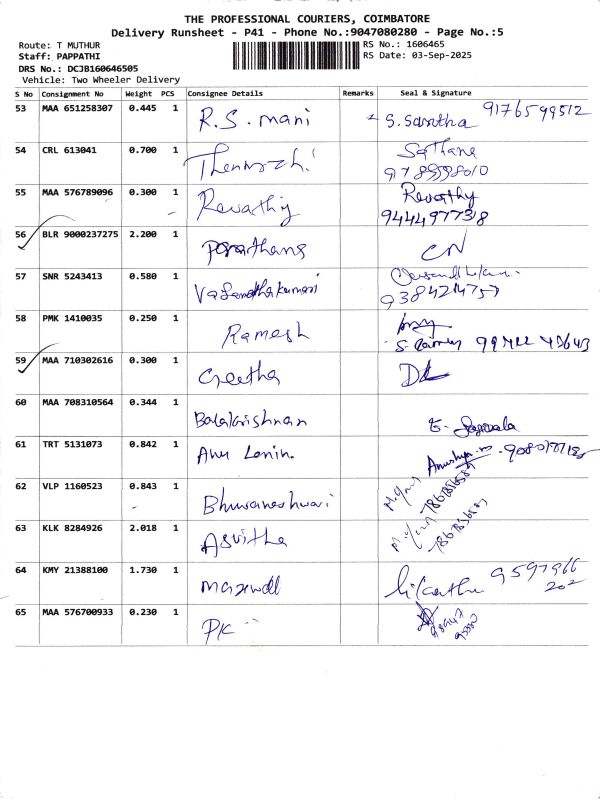 THE PROFESSIONAL COURIERS, COIMBATORE
Delivery Runsheet - P41 - Phone No.:9047080280 - Page No.:5
Route: T MUTHUR
RS No.: 1606465
Staff: PAPPATHI
RS Date: 03-Sep-2025
DRS No.: DCJB160646505
Vehicle: Two Wheeler Delivery
S No Consignment No Weight PCS Consignee Details Remarks Seal & Signature
53 MAA 651258307 0.445 1 R.S. mani 9176599512
54 CRL 613041 0.700 1
55 MAA 576789096 0.300 1 Revathy Revathy
9444977318
56 BLR 9000237275 2.200 1
57 SNR 5243413 0.580 1 Vasanthakumari
58 PMK 1410035 0.250 1 Ramesh
59 MAA 710302616 0.300 1 Geetha
60 MAA 708310564 0.344 1 Balakrishnan
61 TRT 5131073 0.842 1 Anu Lenin.
62 VLP 1160523 0.843 1 Bhuvaneshwari
63 KLK 8284926 2.018 1 Asvitha
64 KMY 21388100 1.730 1
65 MAA 576700933 0.230 1 PK